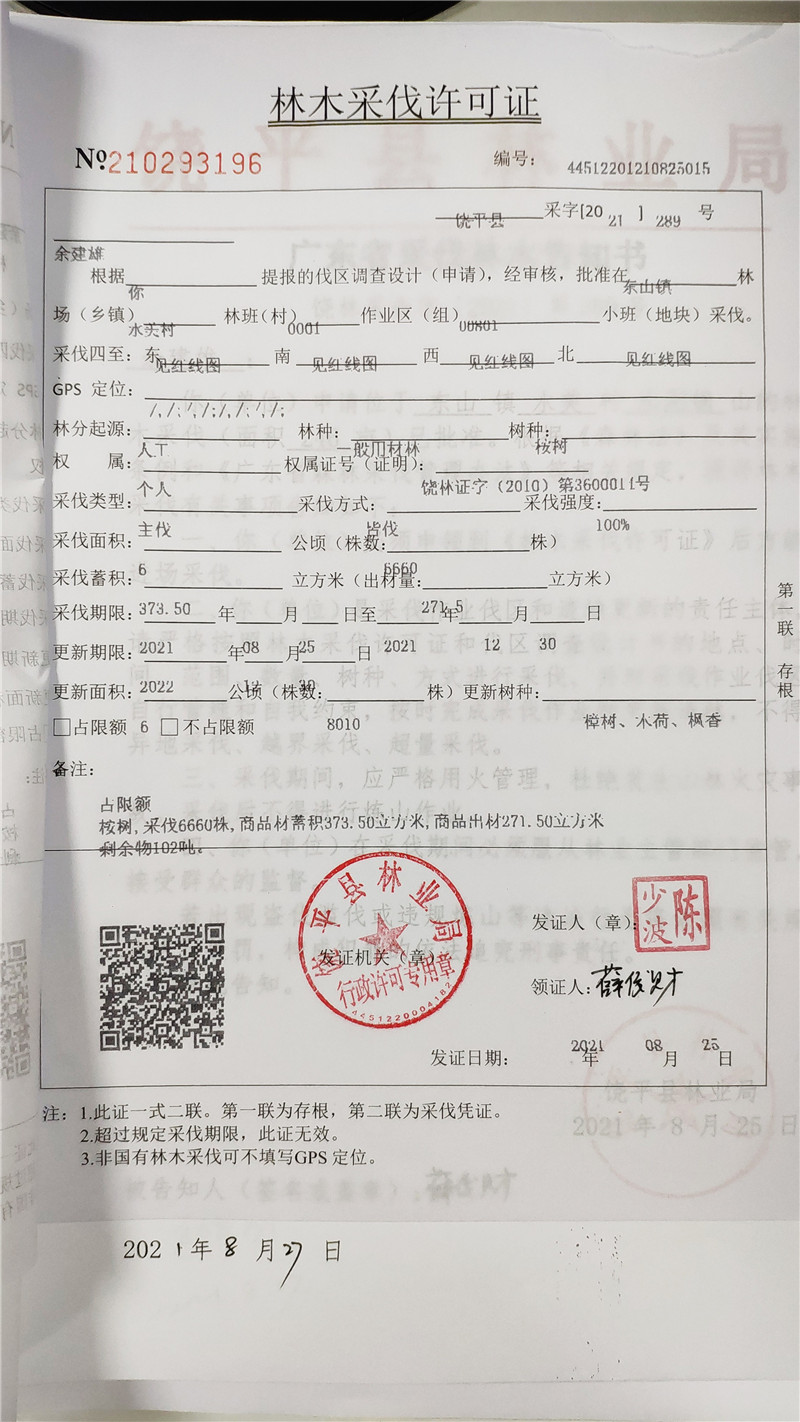 林木采伐许可证
№210293196 编号: 44512201210825015
饶平县 采字[20 21 ] 289 号
余建雄
根据 你 提报的伐区调查设计（申请），经审核，批准在 东山镇 林
场（乡镇） 水关村 林班（村） 0001 作业区（组） 00801 小班（地块）采伐。
采伐四至: 东 见红线图 南 见红线图 西 见红线图 北 见红线图
GPS 定位: /,/;/,/;/,/;/,/;
林分起源: 人工 林种: 一般用材林 树种: 桉树
权 属: 个人 权属证号（证明）: 饶林证字（2010）第3600011号
采伐类型: 主伐 采伐方式: 皆伐 采伐强度: 100%
采伐面积: 6 公顷（株数: 6660 株）
采伐蓄积: 373.50 立方米（出材量: 271.5 立方米）
采伐期限: 2021 年 08 月 25 日至 2021 年 12 月 30 日
更新期限: 2022 年 12 月 30 日
更新面积: 6 公顷（株数: 8010 株）更新树种: 樟树、木荷、枫香
□占限额 □不占限额
备注:
占限额
桉树,采伐6660株,商品材蓄积373.50立方米,商品出材271.50立方米
剩余物102吨。
饶平县林业局
行政许可专用章
发证机关（章）
发证人（章）: 陈少波
领证人:
发证日期: 2021 年 08 月 25 日
第一联 存根
注: 1.此证一式二联。第一联为存根，第二联为采伐凭证。
2.超过规定采伐期限，此证无效。
3.非国有林木采伐可不填写GPS 定位。
2021年8月27日